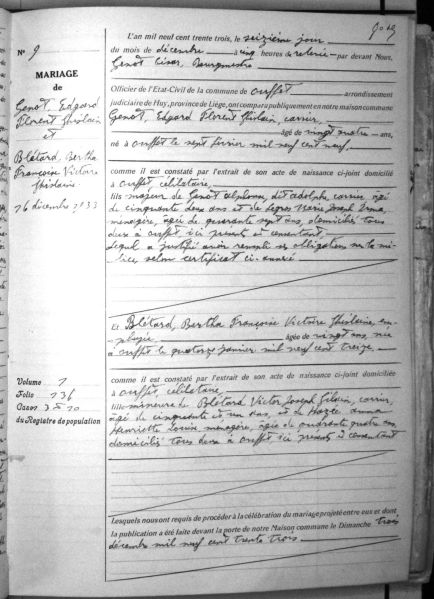 N° 9
MARIAGE
de
Genot, Edgard
Florent Ghislain
et
Blétard, Bertha
Françoise Victoire
Ghislaine
16 décembre 1933
Volume 1
Folio 136
Cases 3 à 10
du Registre de population
L'an mil neuf cent trente trois, le seizième jour
du mois de décembre à cinq heures de relevée par devant Nous,
Genot César, Bourgmestre
Officier de l'Etat-Civil de la commune de Ouffet arrondissement
judiciaire de Huy, province de Liège, ont comparu publiquement en notre maison commune
Genot, Edgard Florent Ghislain, carrier,
âgé de vingt quatre ans,
né à Ouffet le sept février mil neuf cent neuf.
comme il est constaté par l'extrait de son acte de naissance ci-joint domicilié
à Ouffet, célibataire,
fils majeur de Genot Alphonse, dit Adolphe, carrier, âgé
de cinquante deux ans et de Legros Marie Irma,
ménagère, âgée de quarante sept ans, domiciliés tous
deux à Ouffet ici présents et consentant
lequel a justifié avoir rempli ses obligations sur la mi-
lice, selon certificat ci-annexé
et Blétard, Bertha Françoise Victoire Ghislaine, em-
ployée âgée de vingt ans, née
à Ouffet le quatorze janvier mil neuf cent treize.
comme il est constaté par l'extrait de son acte de naissance ci-joint domicilié
à Ouffet, célibataire,
fille mineure de Blétard Victor Joseph, carrier,
âgé de cinquante et un ans, et de Anna
Henriette Louise ménagère, âgée de quarante quatre ans,
domiciliés tous deux à Ouffet ici présents et consentant
Lesquels nous ont requis de procéder à la célébration du mariage projeté entre eux et dont
la publication a été faite devant la porte de notre Maison commune le Dimanche trois
décembre mil neuf cent trente trois